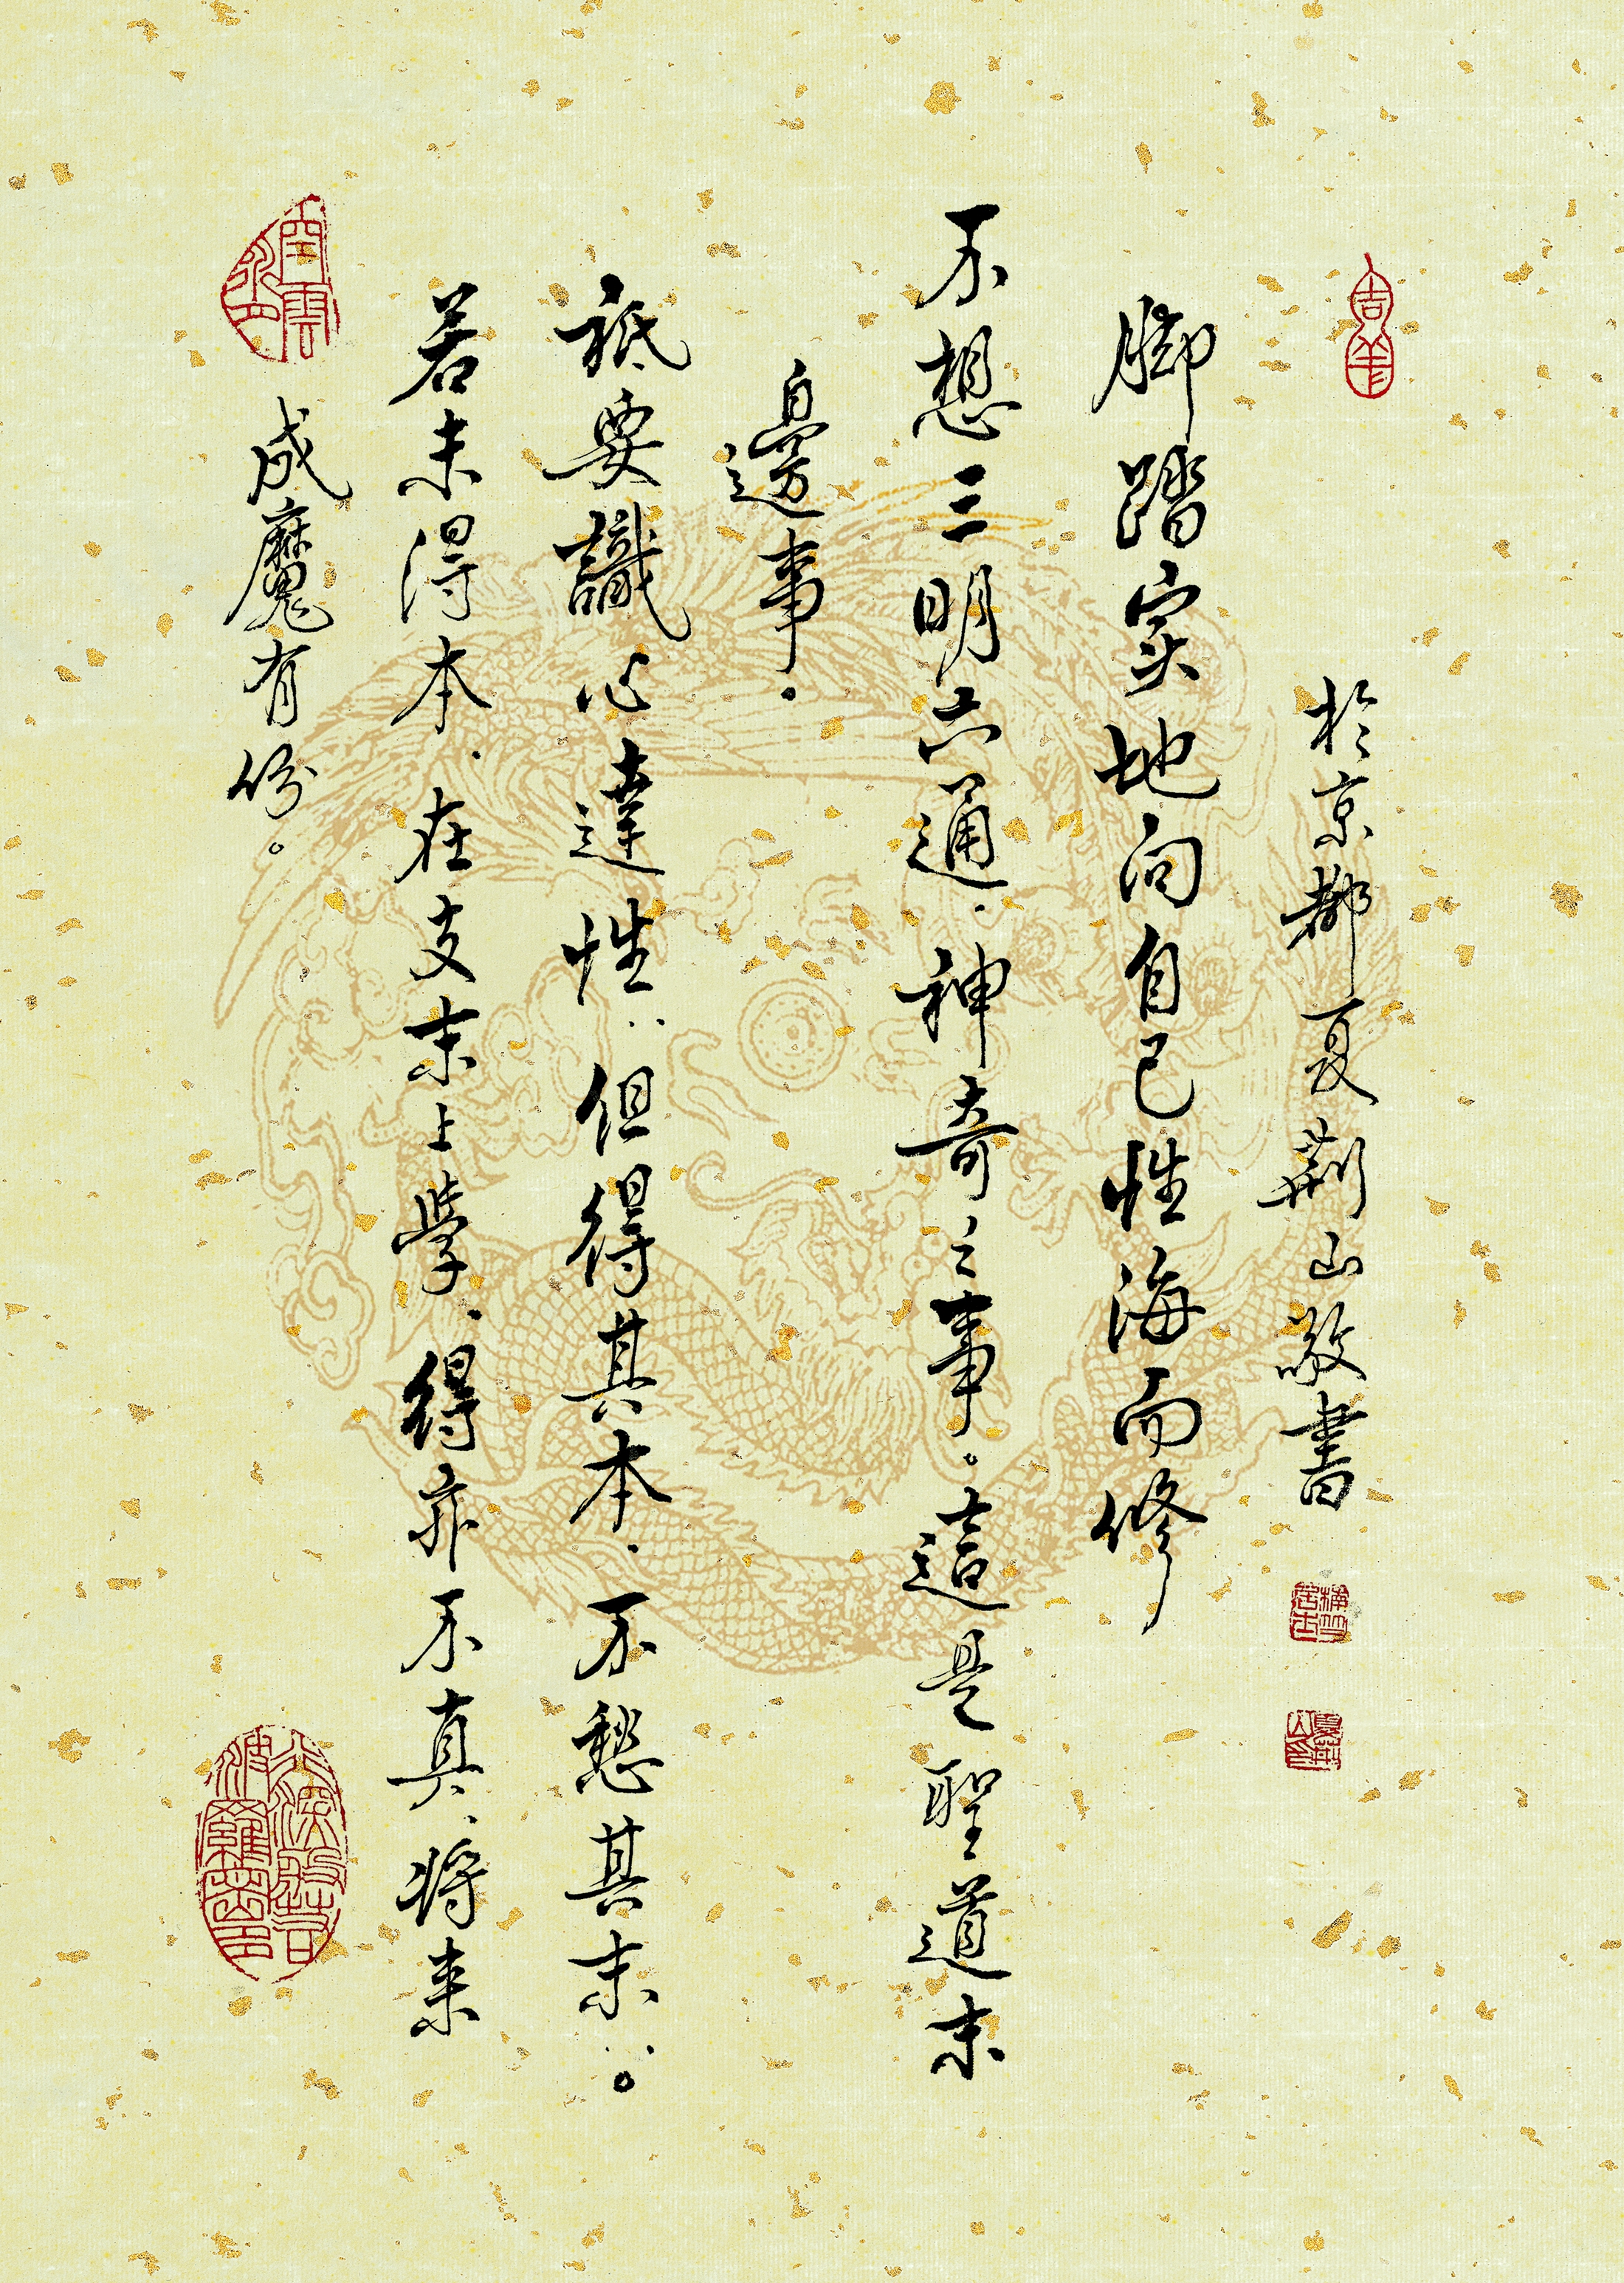 吉羊
於京都夏荊山敬書
夏荊山印
脚踏实地向自己性海而修
不想三明六通.神奇之事。這是聖道末
邊事.
祇要識心達性..但得其本.不愁其末..。
若未得本.在支末上學、得亦不真、将来
成魔有份。